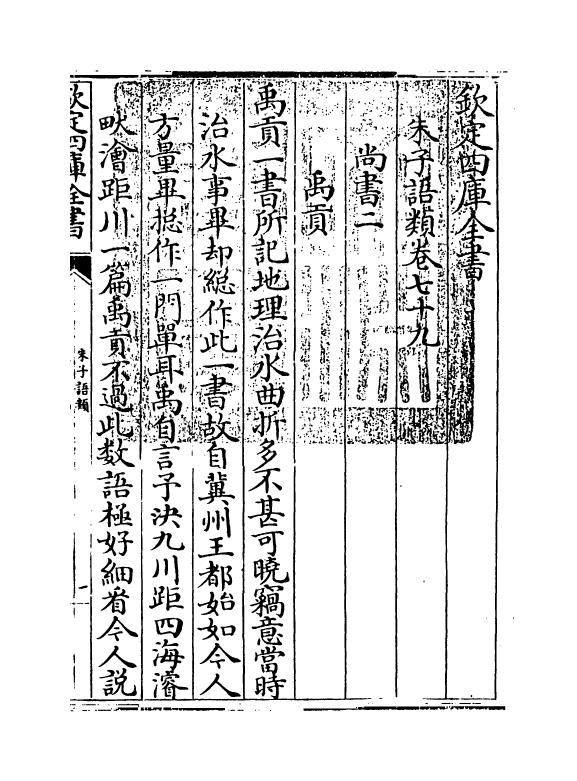 欽定四庫全書
朱子語類卷七十九
尚書二
禹貢
禹貢一書所記地理治水曲折多不甚可曉竊意當時
治水事畢却總作此一書故自冀州王都始如今人
方量畢總作一門單耳禹自言予決九川距四海濬
畎澮距川一篇禹貢不過此数語極好細看今人説
欽定四庫全書
朱子語類
一